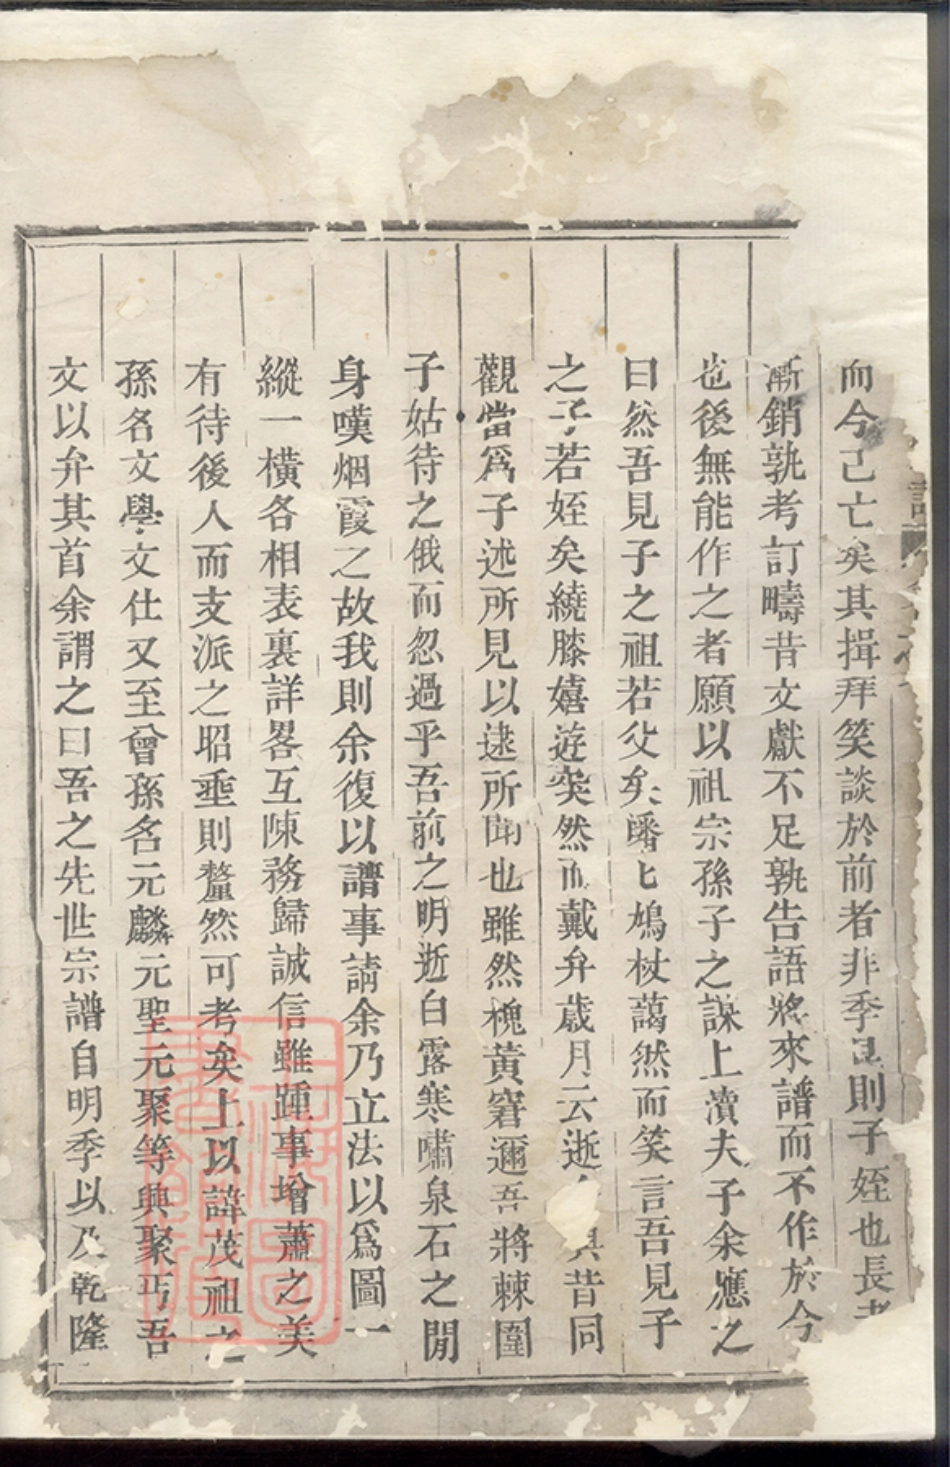 而今已亡矣其揖拜笑談於前者非季且則子姪也長老
漸銷孰考訂疇昔文獻不足孰告語將來譜而不作於今
也後無能作之者願以祖宗孫子之謀上瀆夫子余應之
曰然吾見子之祖若父矣皤匕鳩杖藹然而笑言吾見子
之子若姪矣繞膝嬉遊突然而戴弁歲月云逝 昔同
觀當爲子述所見以逮所聞也雖然槐黃窘邇吾將棘圍
子姑待之俄而忽過乎吾前之明逝白露寒嘯泉石之閒
身嘆烟霞之故我則余復以譜事請余乃立法以爲圖一
縱一橫各相表裏詳畧互陳務歸誠信雖踵事增蕭之美
有待後人而支派之昭垂則釐然可考矣上以諱茂祖之
孫名文學文仕又至曾孫名元麟元聖元聚等興聚丐吾
文以弁其首余謂之曰吾之先世宗譜自明季以及乾隆